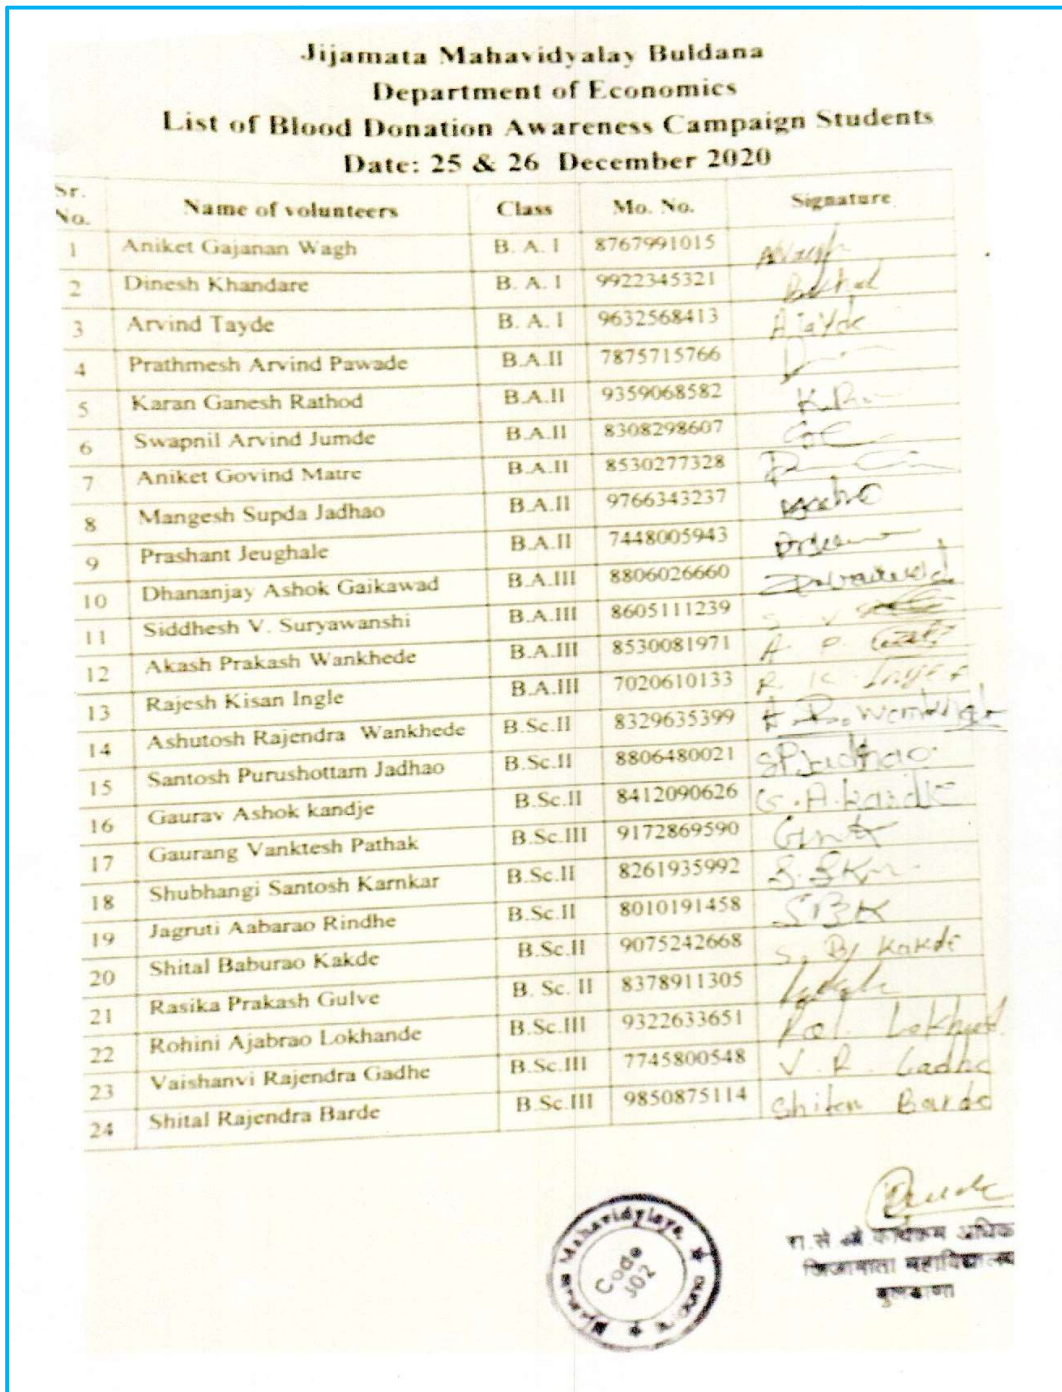 Jijamata Mahavidyalay Buldana
Department of Economics
List of Blood Donation Awareness Campaign Students
Date: 25 & 26 December 2020
Sr. No. Name of volunteers Class Mo. No. Signature
1 Aniket Gajanan Wagh B. A. I 8767991015
2 Dinesh Khandare B. A. I 9922345321
3 Arvind Tayde B. A. I 9632568413
4 Prathmesh Arvind Pawade B.A.II 7875715766
5 Karan Ganesh Rathod B.A.II 9359068582
6 Swapnil Arvind Jumde B.A.II 8308298607
7 Aniket Govind Matre B.A.II 8530277328
8 Mangesh Supda Jadhao B.A.II 9766343237
9 Prashant Jeughale B.A.II 7448005943
10 Dhananjay Ashok Gaikawad B.A.III 8806026660
11 Siddhesh V. Suryawanshi B.A.III 8605111239
12 Akash Prakash Wankhede B.A.III 8530081971
13 Rajesh Kisan Ingle B.A.III 7020610133
14 Ashutosh Rajendra Wankhede B.Sc.II 8329635399
15 Santosh Purushottam Jadhao B.Sc.II 8806480021 SPJadhao
16 Gaurav Ashok kandje B.Sc.II 8412090626
17 Gaurang Vanktesh Pathak B.Sc.III 9172869590
18 Shubhangi Santosh Karnkar B.Sc.II 8261935992
19 Jagruti Aabarao Rindhe B.Sc.II 8010191458 SBK
20 Shital Baburao Kakde B.Sc.II 9075242668 S. B. Kakde
21 Rasika Prakash Gulve B. Sc. II 8378911305
22 Rohini Ajabrao Lokhande B.Sc.III 9322633651
23 Vaishanvi Rajendra Gadhe B.Sc.III 7745800548 V. R. Gadhe
24 Shital Rajendra Barde B.Sc.III 9850875114 Barde
Mahavidylaya
Code
302
रा.से
जिजामाता महाविद्यालय
बुलडाणा